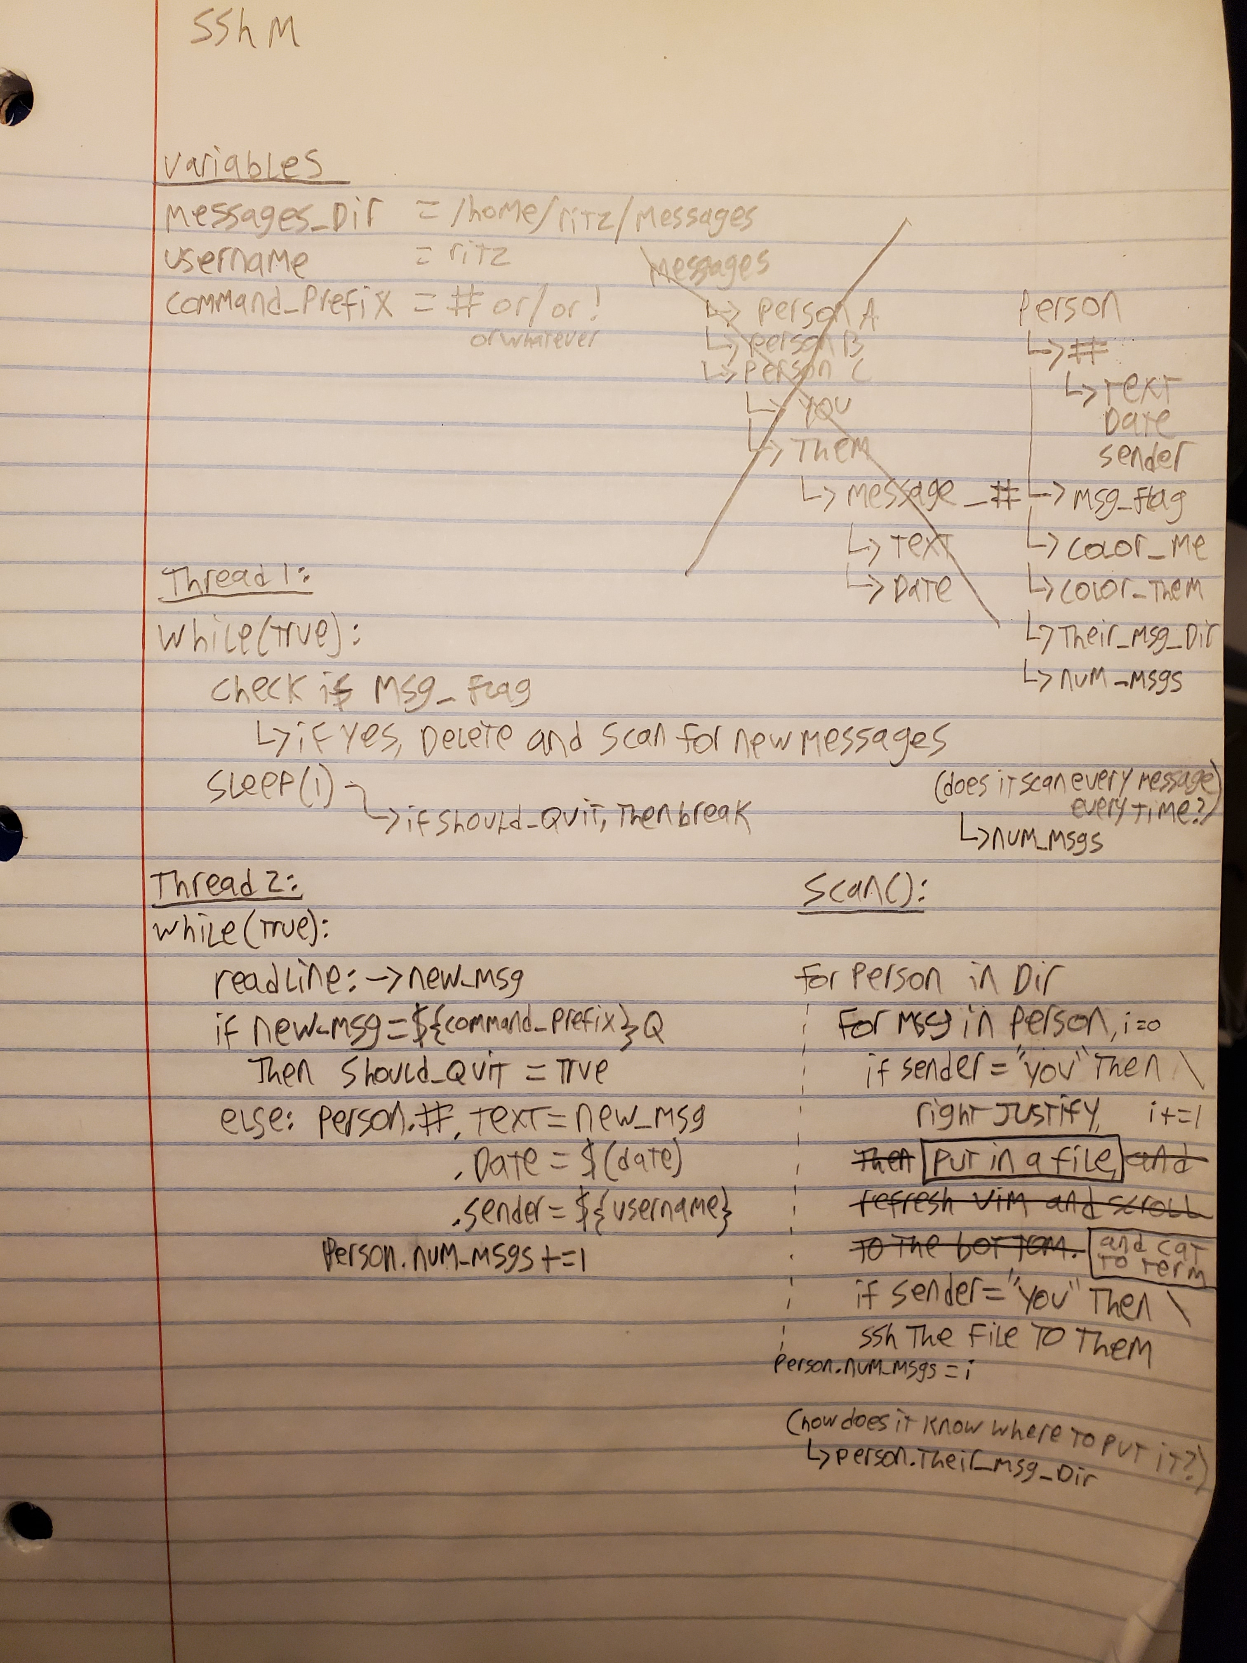 SshM
Variables
Messages_Dir = /home/ritz/Messages
username = ritz
command_Prefix = # or / or !
or whatever
Messages
↳ Person A
↳ Person B
↳ Person C
↳ You
↳ Them
↳ Message_#
↳ Text
↳ Date
Person
↳ #
↳ Text
Date
sender
↳ Msg_flag
↳ color_Me
↳ color_Them
↳ Their_Msg_Dir
↳ num_msgs
Thread 1:
while(True):
check if Msg_flag
↳ if yes, Delete and scan for new messages
sleep(1)
↳ if should_Quit, Then break
(does it scan every message
every time?)
↳ num_msgs
Thread 2:
while(True):
readline: → new_msg
if new_msg = ${command_Prefix}Q
Then should_Quit = True
else: Person.#.Text = new_msg
.Date = $(date)
.sender = ${username}
Person.num_msgs += 1
Scan():
for Person in Dir
for Msg in Person, i=0
if sender = "you" Then \
right Justify, i+=1
Then Put in a file, and
refresh vim and scroll
To The bottom. and cat
To Term
if sender = "you" Then \
ssh The File To Them
Person.num_msgs = i
(how does it know where to put it?)
↳ Person.Their_msg_Dir